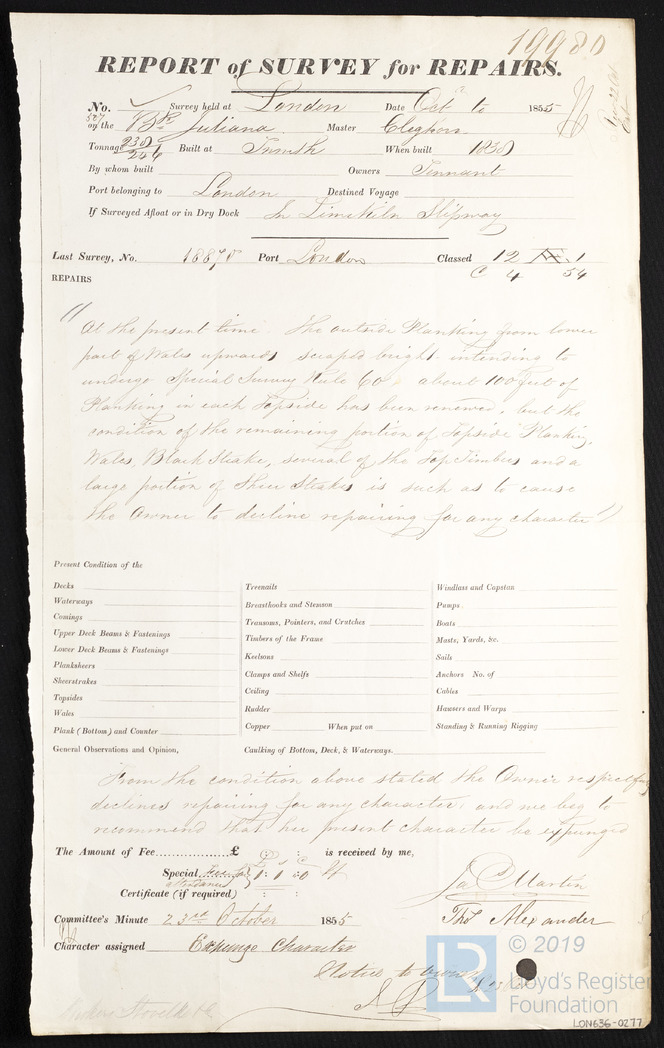 19980
REPORT of SURVEY for REPAIRS.
No. 527 Survey held at London Date Octr 10 1855
on the Bk Juliana Master Cleghorn
Tonnage Built at Built 1830
By whom built Owners Tennant
Port belonging to London Destined Voyage
If Surveyed Afloat or in Dry Dock In Limekiln Slipway
Last Survey, No. Port London Classed 12 1
C 4 54
REPAIRS
"At the present time. The outside Planking from lower
part of Wales upwards scraped bright intending to
undergo Special Survey Rule 60, about 100 feet of
Planking in each Topside has been renewed, but the
condition of the remaining portion of Topside Planking,
Wales, Black Strake, several of the Top Timbers and a
large portion of Sheer Strakes is such as to cause
the Owner to decline repairing for any character"
Present Condition of the
Decks Treenails Windlass and Capstan
Waterways Breasthooks and Stemson Pumps
Comings Transoms, Pointers, and Crutches Boats
Upper Deck Beams & Fastenings Timbers of the Frame Masts, Yards, &c.
Lower Deck Beams & Fastenings Keelsons Sails
Planksheers Clamps and Shelfs Anchors No. of
Sheerstrakes Ceiling Cables
Topsides Rudder Hawsers and Warps
Wales Copper When put on Standing & Running Rigging
Plank (Bottom) and Counter Caulking of Bottom, Deck, & Waterways.
General Observations and Opinion,
From the condition above stated the Owner respectfully
declines repairing for any character, and we beg to
recommend that her present character be expunged
The Amount of Fee £ : : is received by me,
Special attendance 1:1:0
Certificate (if required) : :
Jas Martin
Committee's Minute 23rd October 1855 Thos Alexander
Character assigned Expunge Character
Notice to owner
© 2019
LR Lloyd's Register
Foundation
LON636-0277